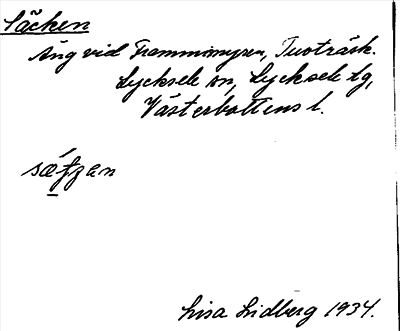 Säcken
Äng vid Trommimyren, Tuvträsk.
Lycksele sn, Lycksele lg,
Västerbottens l.
Lisa Lidberg 1934.